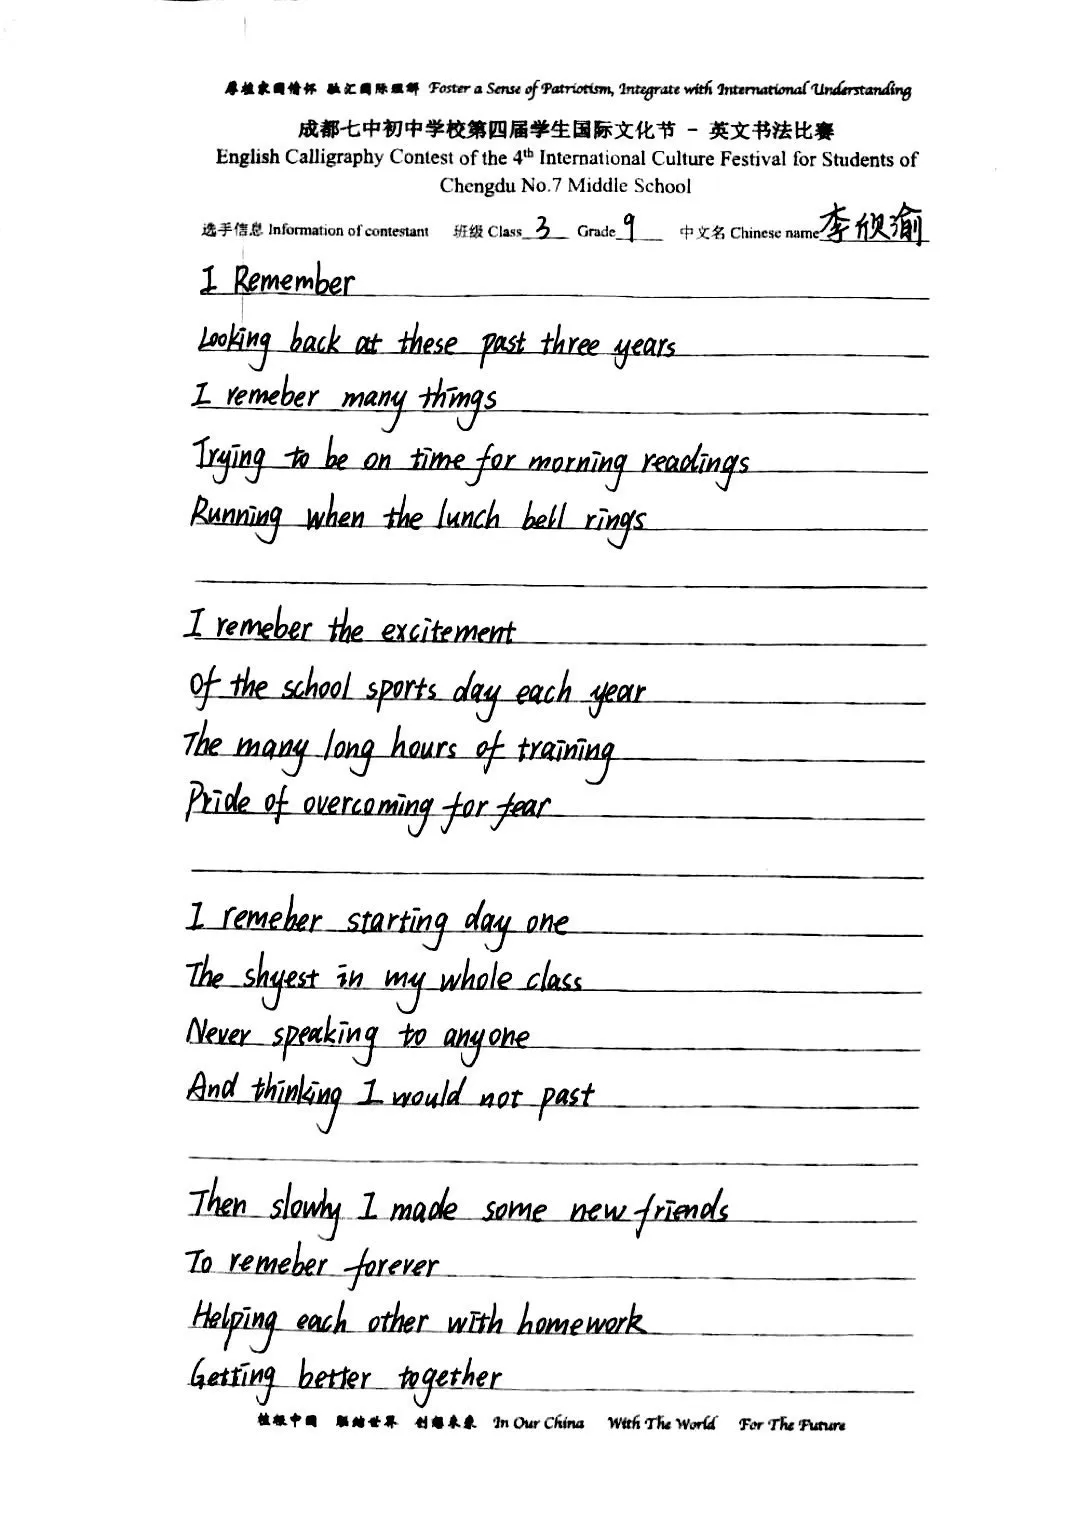 厚植家国情怀 融汇国际理解 Foster a Sense of Patriotism, Integrate with International Understanding
成都七中初中学校第四届学生国际文化节 - 英文书法比赛
English Calligraphy Contest of the 4th International Culture Festival for Students of
Chengdu No.7 Middle School
选手信息 Information of contestant 班级 Class 3 Grade 9 中文名 Chinese name 李欣渝
I Remember
Looking back at these past three years
I remeber many things
Trying to be on time for morning readings
Running when the lunch bell rings
I remeber the excitement
Of the school sports day each year
The many long hours of training
Pride of overcoming for fear
I remeber starting day one
The shyest in my whole class
Never speaking to anyone
And thinking I would not past
Then slowly I made some new friends
To remeber forever
Helping each other with homework
Getting better together
植根中国 联结世界 创想未来 In Our China With The World For The Future